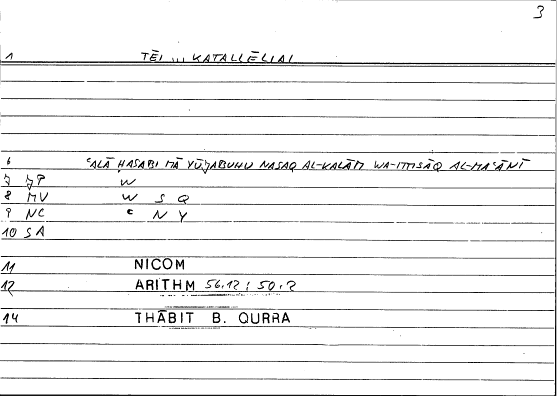 3
1 TĒI ... KATALLĒLIAI
6 ʿALĀ ḤASABI MĀ YŪǦABUHU NASAQ AL-KALĀM WA-ITTISĀQ AL-MAʿĀNĪ
7 ǦP W
8 MV W S Q
9 NC ʿ N Y
10 SA
11 NICOM
12 ARITHM 56.12; 50.2
14 THĀBIT B. QURRA